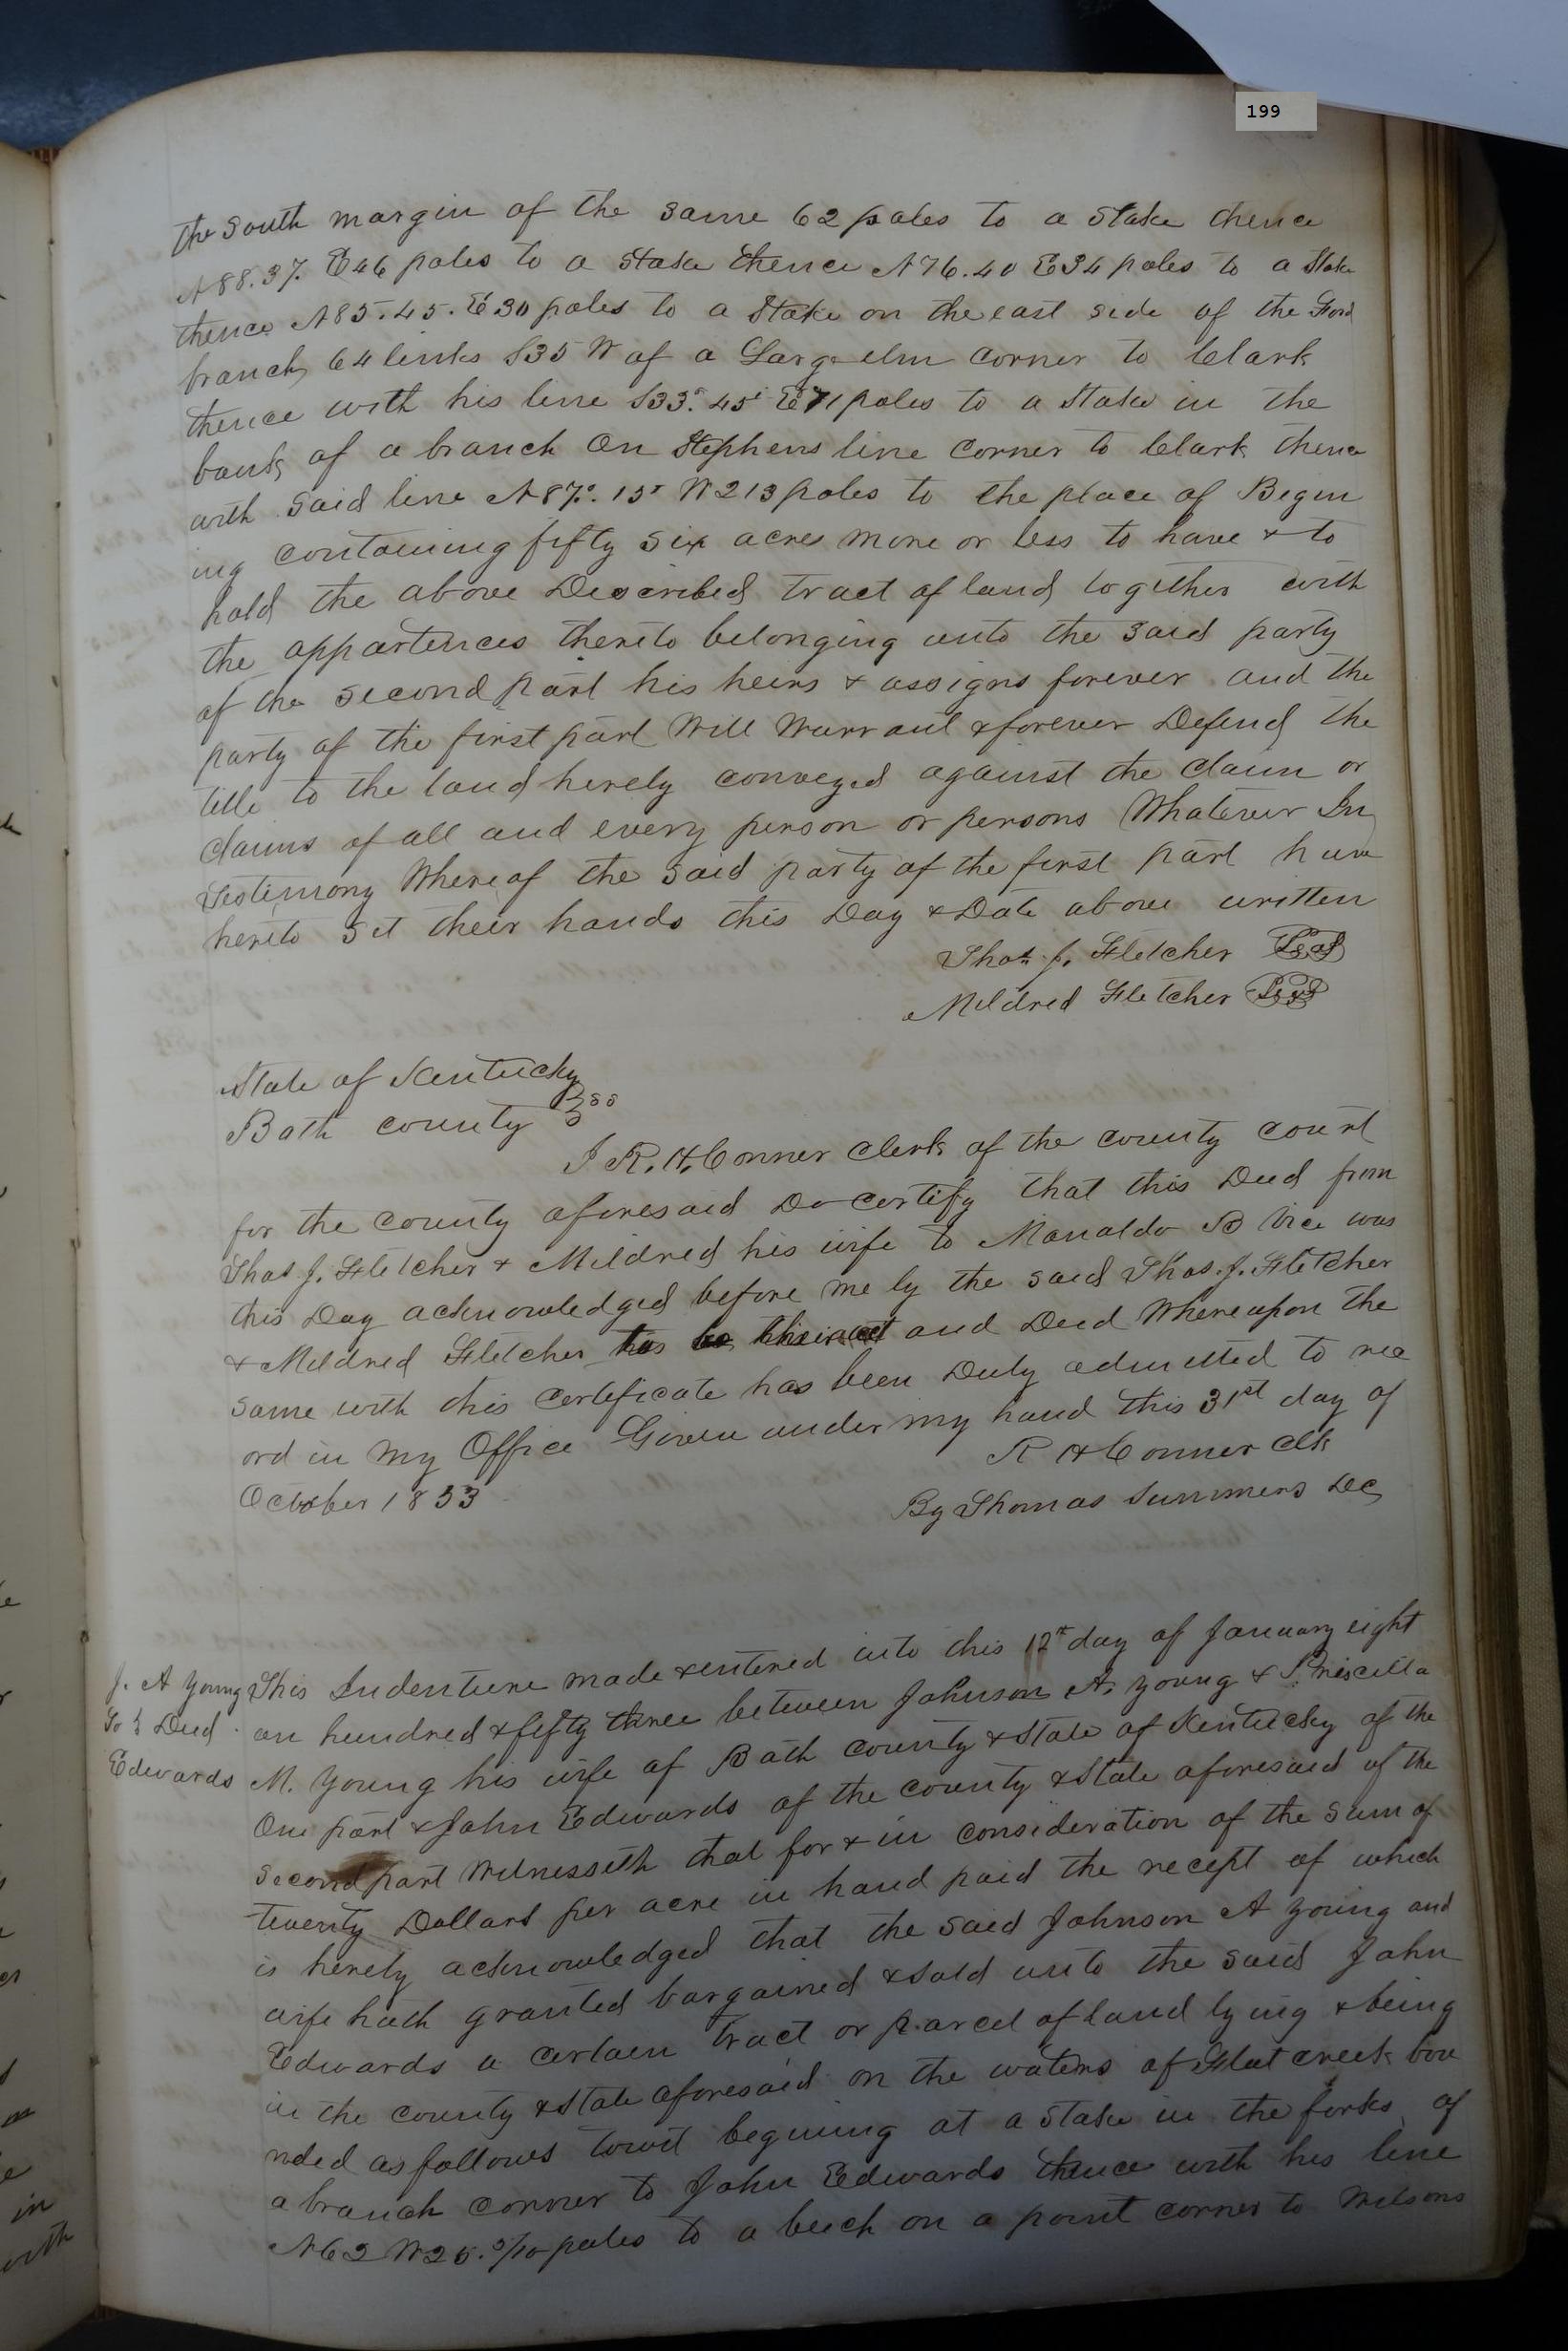 199
the South margin of the same 62 poles to a Stake thence
N88.37. E46 poles to a Stake thence N76.40 E34 poles to a Stake
thence N85.45. E30 poles to a Stake on the east side of the Ford
branch 64 links S35 W of a Larg elm corner to Clark
thence with his line S33°. 45' E71 poles to a Stake in the
bank of a branch On Stephens line corner to Clark thence
with said line N87°. 15' W213 poles to the place of Begin
ing containing fifty six acres more or less to have & to
hold the above Described tract of land to gether with
the appartences thereto belonging unto the said party
of the second part his heirs & assigns forever and the
party of the first part Will Warrant & forever Defend the
title to the land hereby conveyed against the claim or
claims of all and every person or persons Whatever In
Testimony Whereof the said party of the first part have
hereto set their hands this Day & Date above written
Thos. J. Fletcher Seal
Mildred Fletcher Seal
State of Kentucky
Bath county ss
I R. H. Conner Clerk of the county court
for the county aforesaid Do certify that this Deed from
Thos J. Fletcher & Mildred his wife to Manaldo B Vice was
this Day acknowledged before me by the said Thos. J. Fletcher
& Mildred Fletcher to be their act and Deed Whereupon the
same with this certificate has been Duly admitted to rec
ord in my Office Given under my hand this 31st day of
October 1853
R H Conner clk
By Thomas Summers DC
J. A Young
To } Deed
Edwards
This Indenture made & entered into this 12th day of January eight
en hundred & fifty three between Johnson A. Young & Priscilla
M. Young his wife of Bath county & State of Kentucky of the
One part & John Edwards of the county & State aforesaid of the
second part Witnesseth that for & in consideration of the sum of
twenty Dollars per acre in hand paid the recept of which
is hereby acknowledged that the said Johnson A Young and
wife hath granted bargained & sold unto the said John
Edwards a certain tract or parcel of land lying & being
in the county & State aforesaid on the waters of Flat creek bou
nded as follows towit begining at a Stake in the forks of
a branch corner to John Edwards thence with his line
N62 W25. 5/10 poles to a beech on a point corner to Wilsons